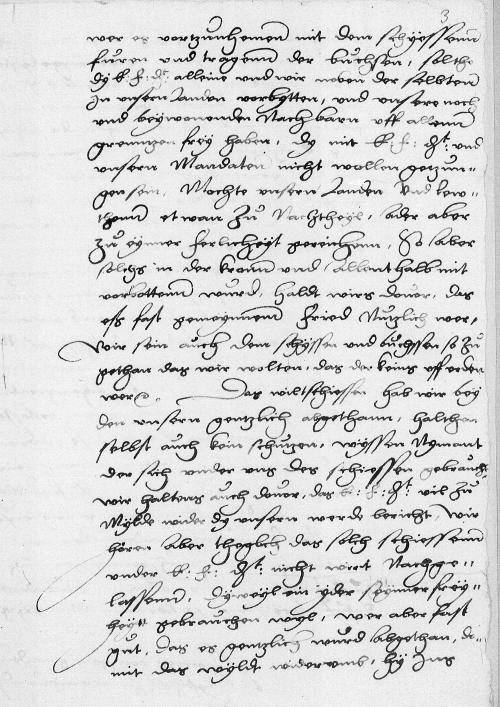 3
wer es vortzunhemenn mit dem schyessenn
furen vnd tragenn der buchsen, solth
dy k: f: g: alleine vnd wir neben der selbten
In vnsern Landen vorbytten, vnd vnsere noch
vnd beywonenden Nachbarn vff allenn
grenitzen frey haben, dy mit k: f: g: vnd
vnsern Mandaten nicht wollen getzun-
gen sein, Mochte vnsern Landen vnd lew-
thenn etwan zu Nachtheyl, ader aber
zu eyner ferlicheyt gereichenn, So aber
solchs in der kronn vnd allenthalb mit
vorbottenn wurd, haldt wirs dovor, das
ess fast gemeynnem Fried Nutzlich wer,
Wir sein auch dem schyssen vnd buchssen so zu
gethan das wir wolten, das der keins vff erden
were. Das wiltschiessen hab wir bey
den vnsern gentzlich abgethann, halthen
selbst auch kein schutzen, wyssen Nymant
der sich vnder vns des schiessen gebraucht
wir haltens auch dovor, das k: f: g: vil zu
Mylde wider dy vnsern werde bericht, Wir
horen aber theglich das solch schiessenn
vnder k: f: g: nicht wirt Nachge-
lassenn, dyweyl ein yder seyner frey-
heyt gebrauchen wyl, wer aber fast
gut, das es gentzlich wurd abgethan, do
mit das wyldt widerumb, hy Ins